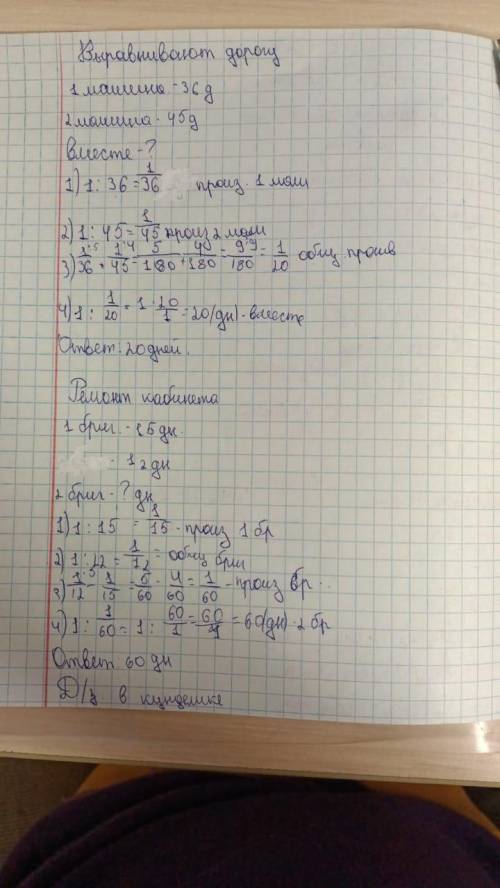 Выравнивают дорогу
1 машина - 36 д
2 машина - 45 д
Вместе - ?
1) 1 : 36 = 1/36 произ. 1 маш
2) 1 : 45 = 1/45 произ 2 маш
3) 1/36 + 1/45 = 5/180 + 4/180 = 9/180 = 1/20 общ. произв
4) 1 : 1/20 = 1 · 20/1 = 20 (дн) - вместе
Ответ: 20 дней.
Ремонт кабинета
1 бриг. - 15 дн.
12 дн
2 бриг - ? дн
1) 1 : 15 = 1/15 - произ 1 бр
2) 1 : 12 = 1/12 = общ бриг
3) 1/12 - 1/15 = 5/60 - 4/60 = 1/60 - произ бр
4) 1 : 1/60 = 1 : 60/1 = 60/1 = 60 (дн) - 2 бр
Ответ 60 дн
Д/з в кунделике